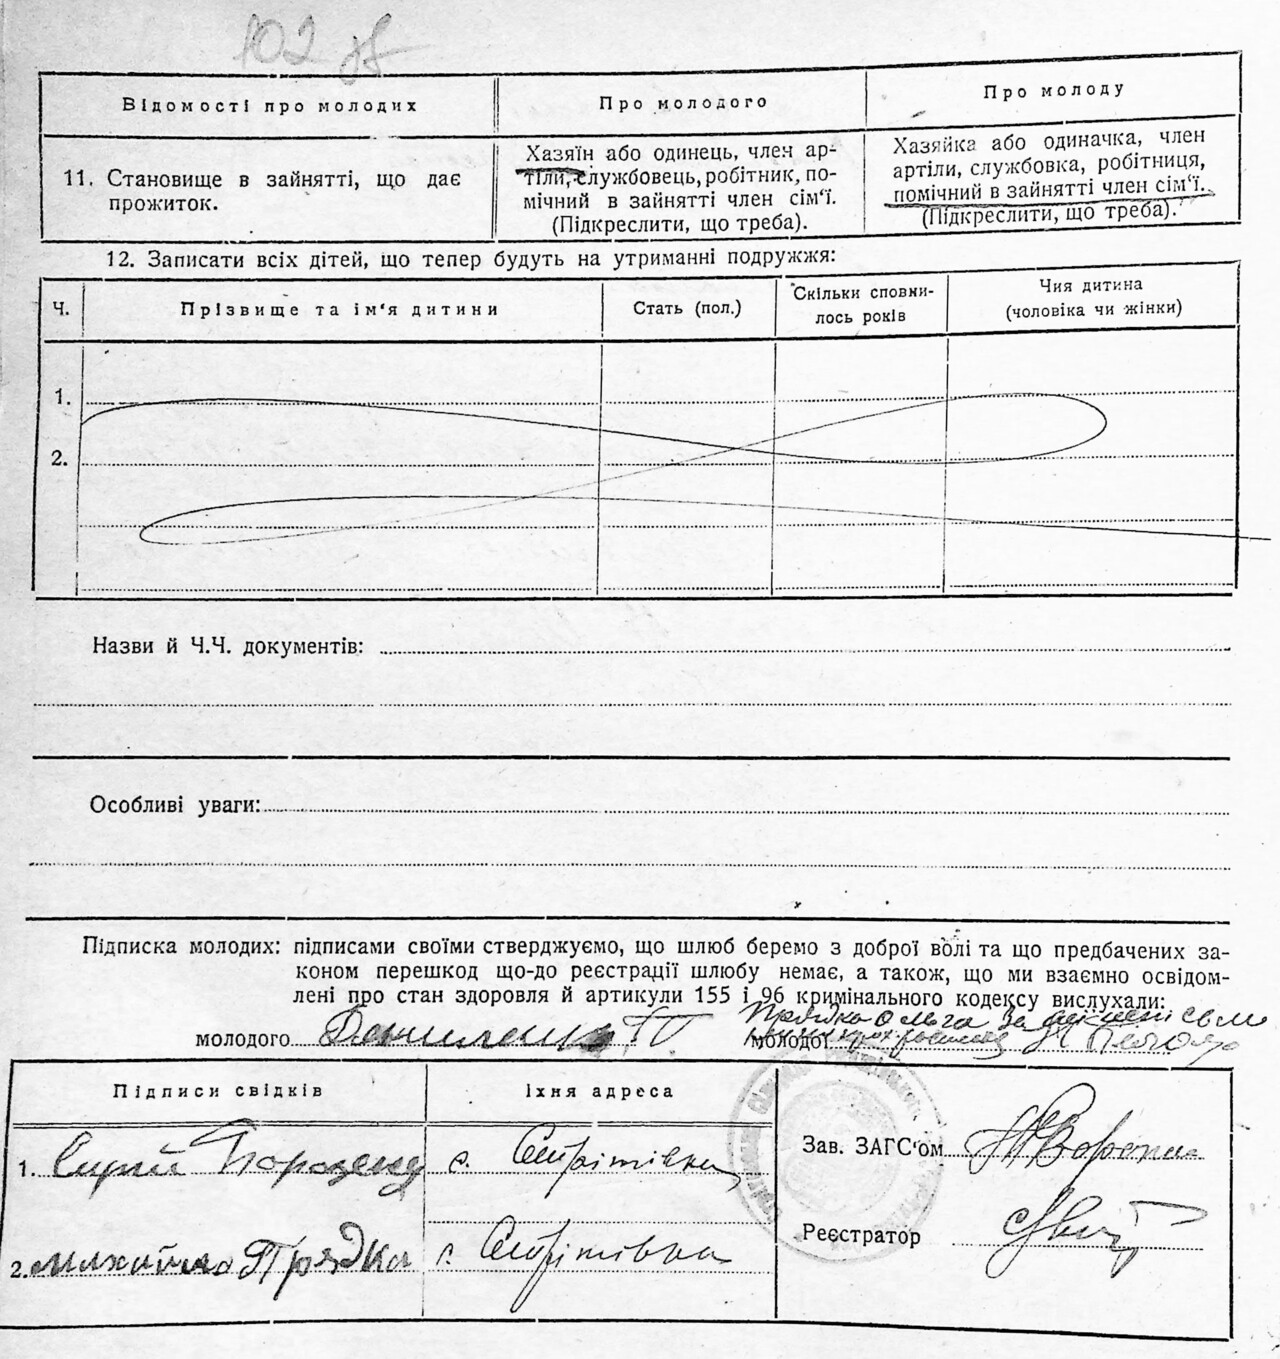 102 зв
Відомості про молодих
Про молодого
Про молоду
11. Становище в зайнятті, що дає
прожиток.
Хазяїн або одинець, член ар-
тіли, службовець, робітник, по-
мічний в зайнятті член сім'ї.
(Підкреслити, що треба).
Хазяйка або одиначка, член
артіли, службовка, робітниця,
помічний в зайнятті член сім'ї.
(Підкреслити, що треба).
12. Записати всіх дітей, що тепер будуть на утриманні подружжя:
Ч.
Прізвище та ім'я дитини
Стать (пол.)
Скільки сповни-
лось років
Чия дитина
(чоловіка чи жінки)
1.
2.
Назви й Ч.Ч. документів:
Особливі уваги:
Підписка молодих: підписами своїми стверджуємо, що шлюб беремо з доброї волі та що предбачених за-
коном перешкод що-до реєстрації шлюбу немає, а також, що ми взаємно освідом-
лені про стан здоровля й артикули 155 і 96 кримінального кодексу вислухали:
Прядка Ольга за
молодого
молодої
Підписи свідків
Їхня адреса
1. Сергій с.
2. Михайло Прядка с.
Зав. ЗАГС'ом
Реєстратор